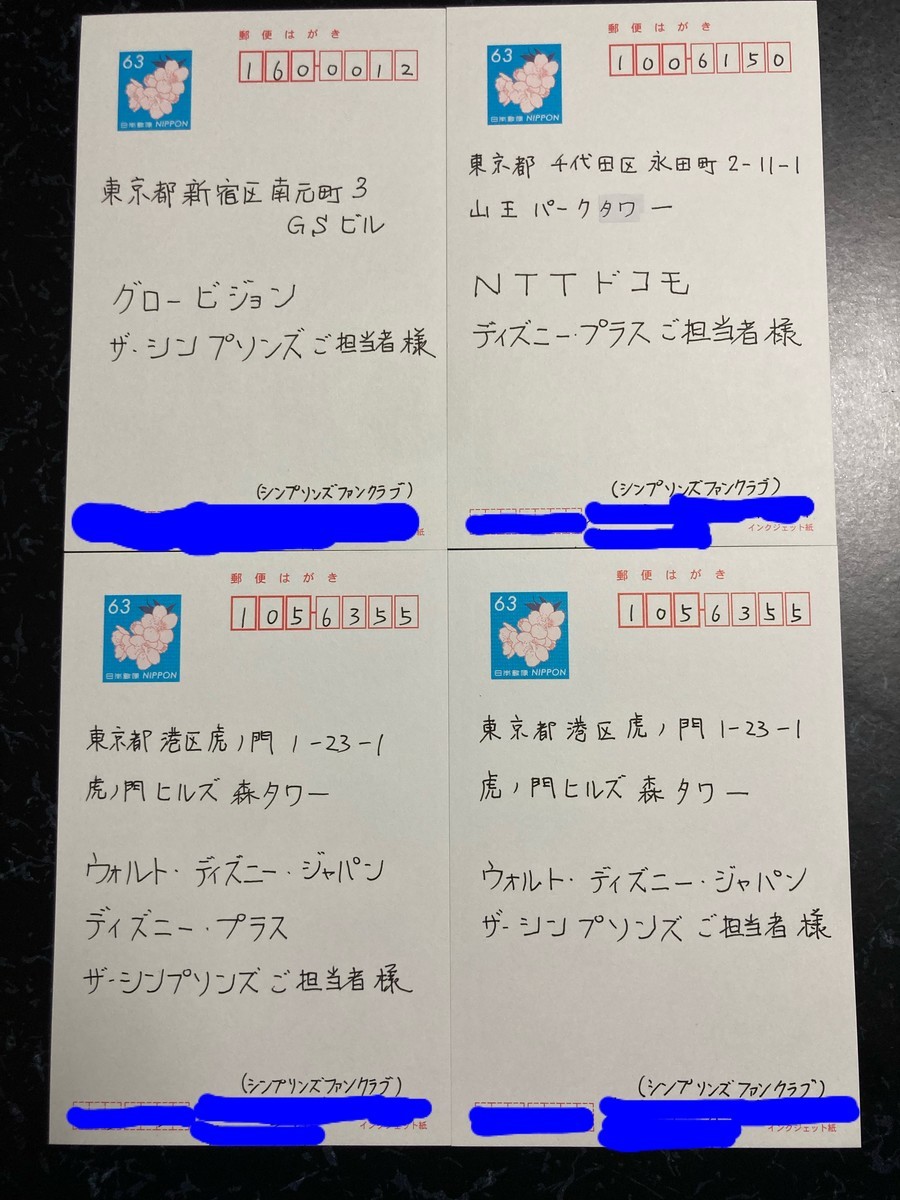 郵便はがき
63
日本郵便 NIPPON
1600012
東京都新宿区南元町3
G.Sビル
グロービジョン
ザ・シンプソンズご担当者様
(シンプソンズファンクラブ)
紙
郵便はがき
63
日本郵便 NIPPON
1006150
東京都千代田区永田町2-11-1
山王パークタワー
NTTドコモ
ディズニー・プラスご担当者様
(シンプソンズファンクラブ)
インクジェット紙
郵便はがき
63
日本郵便 NIPPON
1056355
東京都港区虎ノ門1-23-1
虎ノ門ヒルズ森タワー
ウォルト・ディズニー・ジャパン
ディズニー・プラス
ザ・シンプソンズご担当者様
(シンプソンズファンクラブ)
インクジェット紙
郵便はがき
63
日本郵便 NIPPON
1056355
東京都港区虎ノ門1-23-1
虎ノ門ヒルズ森タワー
ウォルト・ディズニー・ジャパン
ザ・シンプソンズご担当者様
(シンプソンズファンクラブ)
インクジェット紙